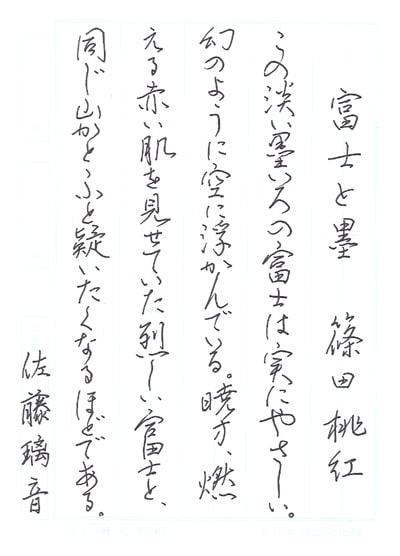 富士と墨　篠田桃紅
この淡い墨いろの富士は実にやさしい。
幻のように空に浮かんでいる。暁方、燃
える赤い肌を見せていた烈しい富士と、
同じ山かとふと疑いたくなるほどである。
佐藤璃音